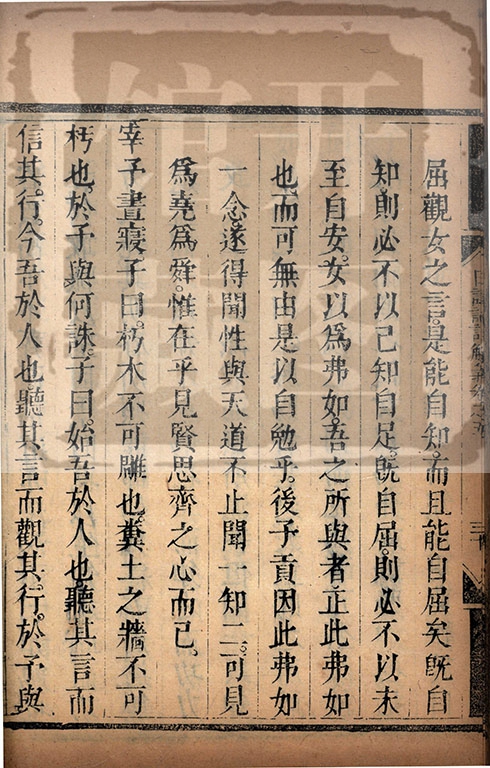 屈觀女之言是能自知而且能自屈矣旣自
知則必不以己知自足旣自屈則必不以未
至自安女以爲弗如吾之所與者正此弗如
也而可無由是以自勉乎後子貢因此弗如
一念遂得聞性與天道不止聞一知二可見
爲堯爲舜惟在乎見賢思齊之心而已
宰予晝寢子曰朽木不可雕也糞土之牆不可
杇也於予與何誅子曰始吾於人也聽其言而
信其行今吾於人也聽其言而觀其行於予與